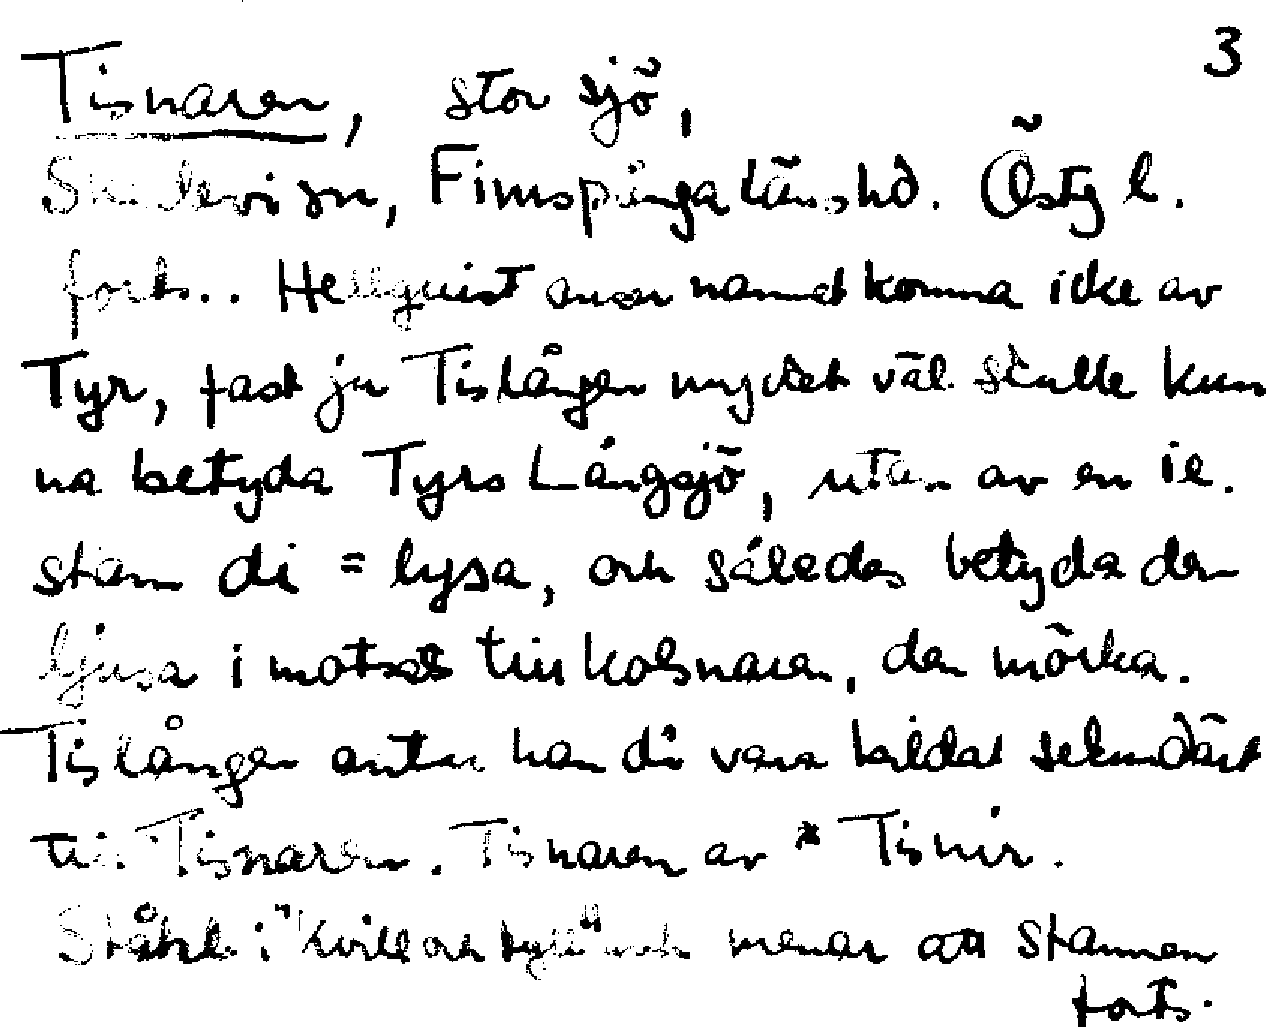 3
Tisnaren, stor sjö,
Skedevi sn, Finspånga länshd. Östgl.
forts.. Hellquist anser namnet komma icke av
Tyr, fast ju Tislången mycket väl skulle kun
na betyda Tyrs Långsjö, utan av en ie.
stam di = lysa, och således betyda den
ljusa i motsats till Kolsnaren, den mörka.
Tislången antar han då vara bildat sekundärt
till Tisnaren. Tisnaren av * Tisnir.
Ståhl i "Kvill och tyll" menar att stammen
forts.